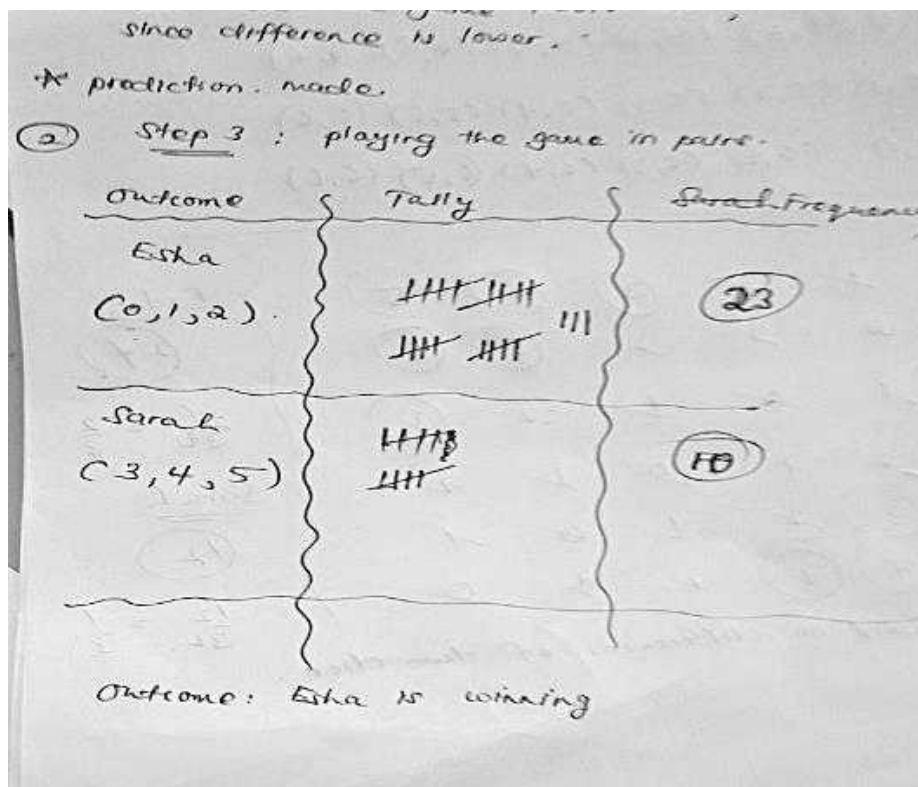 since difference is lower.
* prediction. made.
2 Step 3 : playing the game in pairs.
Outcome Tally Sarah Frequency
Esha
(0,1,2).
23
Sarah
(3,4,5)
10
Outcome: Esha is winning